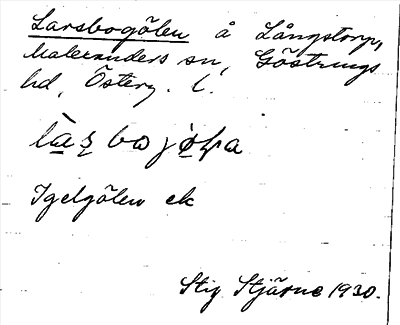 Larsbogölen å Långstorp,
Malexanders sn, Göstrings
hd, Österg. l.
Igelgölen ek
Stig Stjärne 1930.